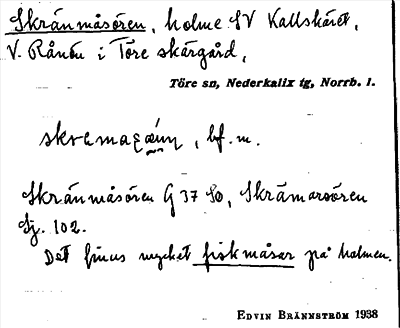 Skränmåsören, holme SV Kallskäret,
V. Rånön i Töre skärgård,
Töre sn, Nederkalix tg, Norrb. l.
bf. m.
Skränmåsören G 37 So, Skrämarsören
Sj. 102.
Det finns mycket fiskmåsar på holmen.
EDVIN BRÄNNSTRÖM 1938